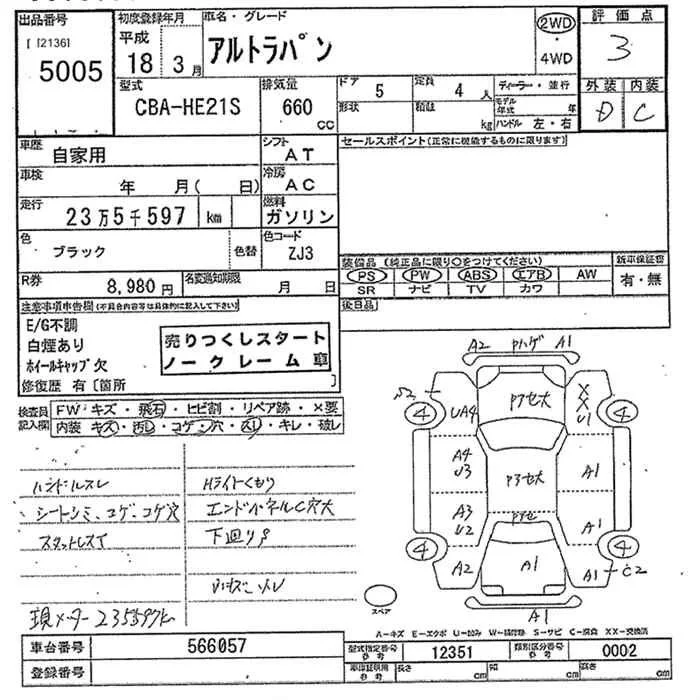 出品番号 初度登録年月 車名・グレード 2WD 評価点
[ [2136]
5005
平成
18 3月 アルトラパン 4WD 3
型式 排気量 ドア 5 定員 4 人 ディーラー・並行 外装 内装
CBA-HE21S 660 cc 形状 積載 kg モデル年式 年 D C
ハンドル 左・右
車歴 自家用 シフト AT セールスポイント(正常に機能するものに限ります)
車検 年 月( 日) 冷房 AC
走行 23万5千597 km 燃料 ガソリン
色 ブラック 色替 色コード ZJ3 装備品 (純正品に限り○をつけてください) 新車保証書
PS PW ABS エアB AW 有・無
R券 8,980円 名変通知期限 月 日 SR ナビ TV カワ
注意事項申告欄(不具合内容等は具体的に記入して下さい) 後日品
E/G不調
白煙あり
ホイールキャップ欠
修復歴 有〔箇所 〕
売りつくしスタート
ノークレーム車
検査員記入欄 FW キズ・飛石・ヒビ割・リペア跡・×要
内装 キズ・汚レ・コゲ・穴・スレ・キレ・破レ
ハンドルスレ Hライトくもり
シートシミ、コゲ、コゲ穴 エンドパネルC穴大
スタットレスT 下回りS
現メーター235597k
A2 Pハゲ A1
S2 4 UA4 P7セ大 XX U1 4
A4 U3 A1
A3 U2 P3セ大 A1
P7セ
4 A2 A1 A1 C2 4
A1
スペア
A-キズ E-エクボ U-凹み W-補修跡 S-サビ C-腐食 XX-交換済
車台番号 566057 型式指定番号 参考 12351 類別区分番号 参考 0002
登録番号 車庫証明用 参考 長さ cm 幅 cm 高さ cm